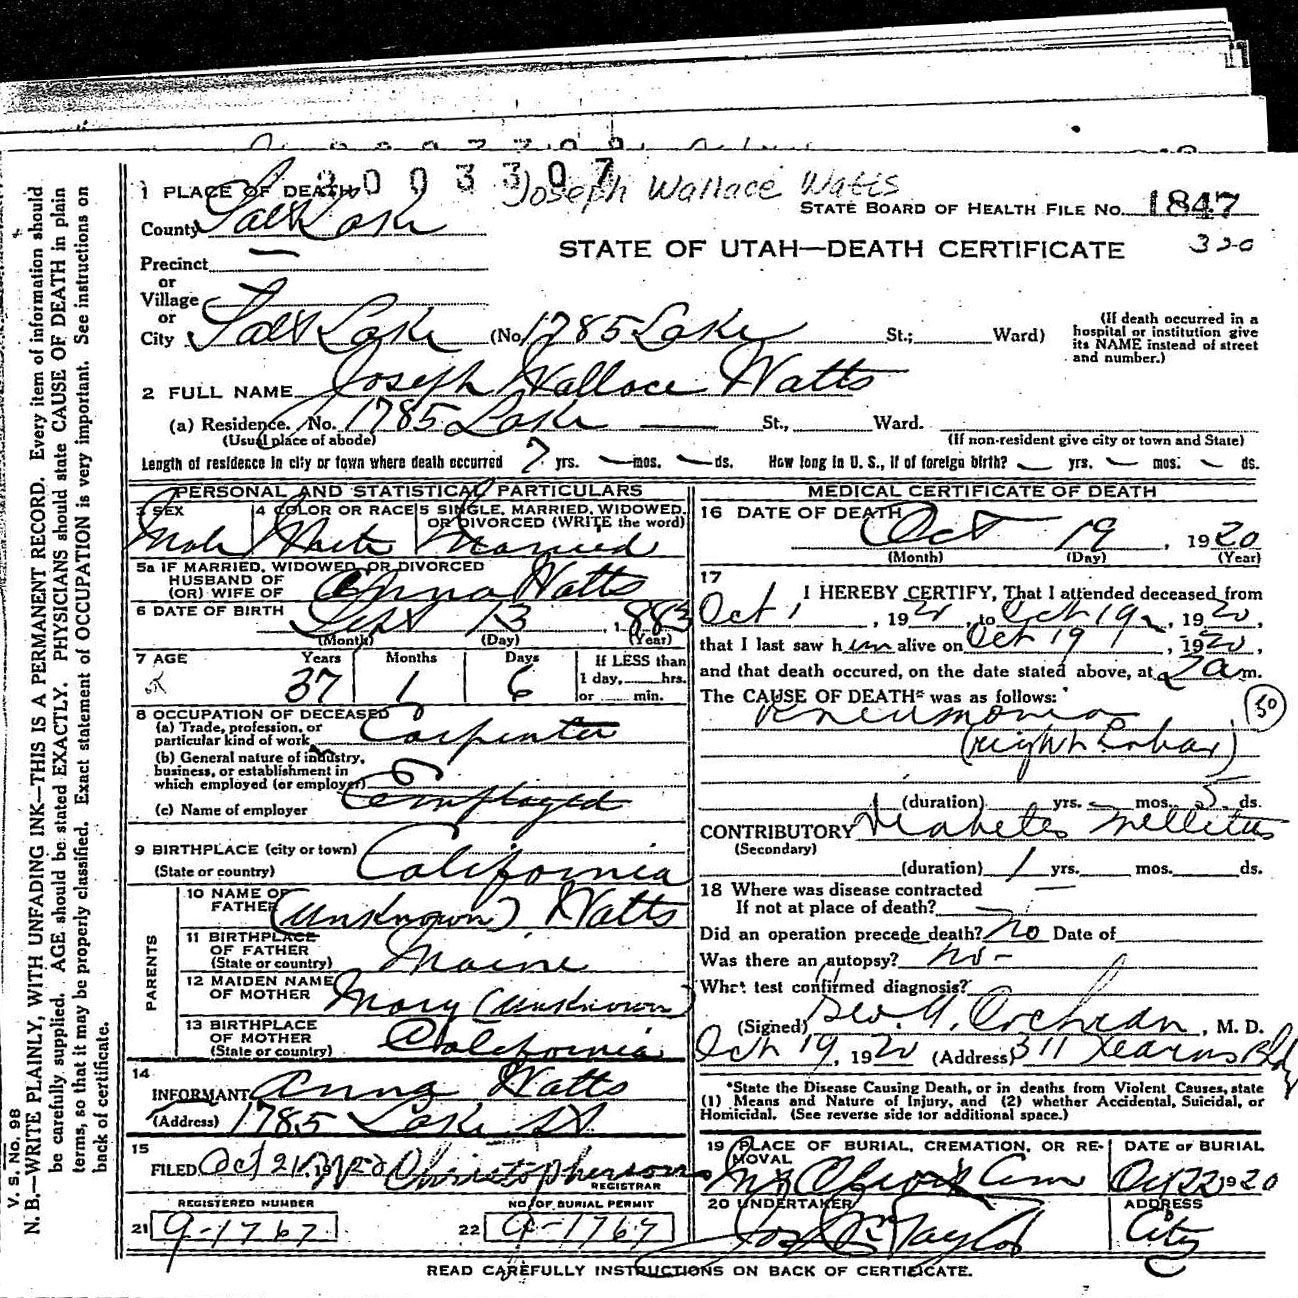 2003307 Joseph Wallace Watts
1 PLACE OF DEATH
STATE BOARD OF HEALTH FILE No. 1847
County Salt Lake
STATE OF UTAH—DEATH CERTIFICATE 320
Precinct
or
Village
or
City Salt Lake (No. 1785 Lake St.; Ward)
(If death occurred in a
hospital or institution give
its NAME instead of street
and number.)
2 FULL NAME Joseph Wallace Watts
(a) Residence. No. 1785 Lake St., Ward.
(Usual place of abode) (If non-resident give city or town and State)
Length of residence in city or town where death occurred 7 yrs. — mos. — ds. How long in U. S., if of foreign birth? — yrs. — mos. — ds.
PERSONAL AND STATISTICAL PARTICULARS
3 SEX 4 COLOR OR RACE 5 SINGLE, MARRIED, WIDOWED,
OR DIVORCED (WRITE the word)
Male White Married
5a IF MARRIED, WIDOWED, OR DIVORCED
HUSBAND OF
(OR) WIFE OF Anna Watts
6 DATE OF BIRTH Sept 13, 1883
(Month) (Day) (Year)
7 AGE Years Months Days If LESS than
1 day, hrs.
or min.
37 1 6
8 OCCUPATION OF DECEASED
(a) Trade, profession, or
particular kind of work Carpenter
(b) General nature of industry,
business, or establishment in
which employed (or employer)
(c) Name of employer Employed
9 BIRTHPLACE (city or town)
(State or country) California
PARENTS
10 NAME OF
FATHER (Unknown) Watts
11 BIRTHPLACE
OF FATHER
(State or country) Maine
12 MAIDEN NAME
OF MOTHER Mary (Unknown)
13 BIRTHPLACE
OF MOTHER
(State or country) California
14
INFORMANT Anna Watts
(Address) 1785 Lake St
15
FILED Oct 21, 19 Christopherson
REGISTRAR
REGISTERED NUMBER NO. OF BURIAL PERMIT
21 9-1767 22 9-1767
MEDICAL CERTIFICATE OF DEATH
16 DATE OF DEATH Oct 19, 1920
(Month) (Day) (Year)
17
I HEREBY CERTIFY, That I attended deceased from
Oct 1, 1920, to Oct 19, 1920,
that I last saw him alive on Oct 19, 1920,
and that death occured, on the date stated above, at 2 a m.
The CAUSE OF DEATH* was as follows:
Pneumonia 50
(right Lobar)
(duration) yrs. — mos. 5 ds.
CONTRIBUTORY Diabetes Mellitus
(Secondary)
(duration) 1 yrs. mos. ds.
18 Where was disease contracted
If not at place of death?
Did an operation precede death? No Date of
Was there an autopsy? No-
What test confirmed diagnosis?
(Signed) Geo. W. Cochran, M. D.
Oct 19, 1920 (Address) 311 Kearns Bldg
*State the Disease Causing Death, or in deaths from Violent Causes, state
(1) Means and Nature of Injury, and (2) whether Accidental, Suicidal, or
Homicidal. (See reverse side for additional space.)
19 PLACE OF BURIAL, CREMATION, OR RE-
MOVAL DATE OF BURIAL
Mt Olivet Cem Oct 22 1920
20 UNDERTAKER ADDRESS
Jos Taylor City
READ CAREFULLY INSTRUCTIONS ON BACK OF CERTIFICATE.
V. S. No. 98
N. B.—WRITE PLAINLY, WITH UNFADING INK—THIS IS A PERMANENT RECORD. Every item of information should
be carefully supplied. AGE should be stated EXACTLY. PHYSICIANS should state CAUSE OF DEATH in plain
terms, so that it may be properly classified. Exact statement of OCCUPATION is very important. See instructions on
back of certificate.